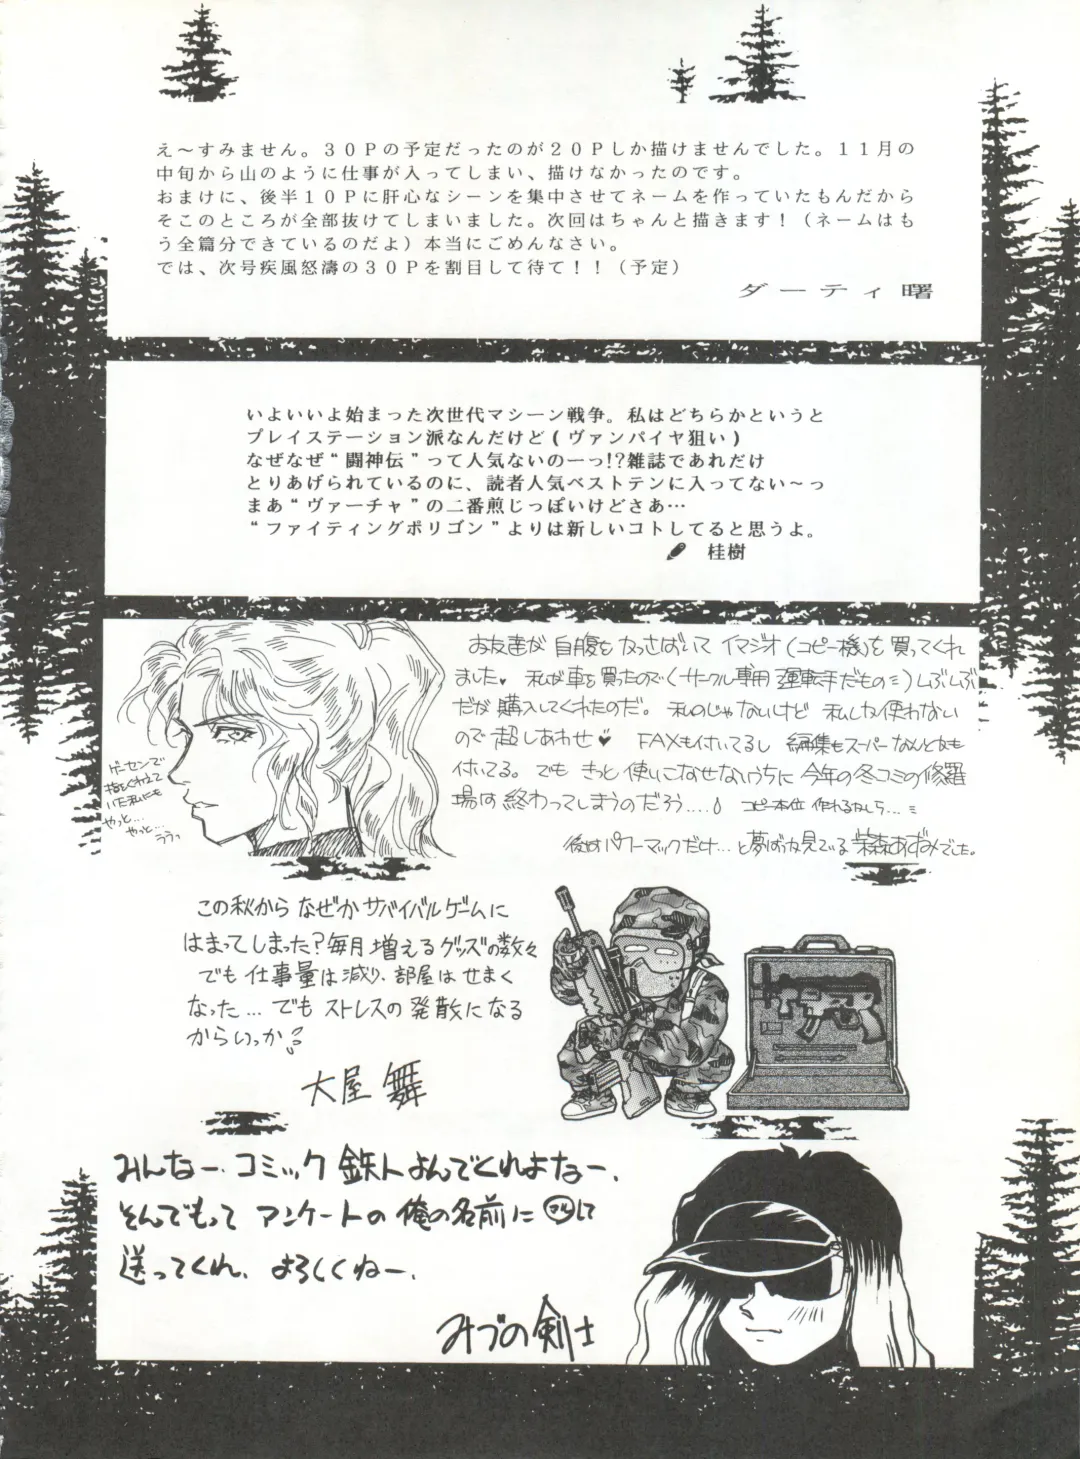 え～すみません。３０Ｐの予定だったのが２０Ｐしか描けませんでした。１１月の
中旬から山のように仕事が入ってしまい、描けなかったのです。
おまけに、後半１０Ｐに肝心なシーンを集中させてネームを作っていたもんだから
そこのところが全部抜けてしまいました。次回はちゃんと描きます！（ネームはも
う全篇分できているのだよ）本当にごめんなさい。
では、次号疾風怒濤の３０Ｐを割目して待て！！（予定）
ダーティ曙
いよいよ始まった次世代マシーン戦争。私はどちらかというと
プレイステーション派なんだけど(ヴァンパイヤ狙い)
なぜなぜ“闘神伝”って人気ないのーっ!?雑誌であれだけ
とりあげられているのに、読者人気ベストテンに入ってない～っ
まあ“ヴァーチャ”の二番煎じっぽいけどさあ…
“ファイティングポリゴン”よりは新しいコトしてると思うよ。
桂樹
お友達が自腹をかっさばいてイマジオ(コピー機)を買ってくれ
ました♥ 私が車を買ったので(サークル専用運転手だもの)しぶしぶ
だが購入してくれたのだ。私のじゃないけど私しか使わない
ので超しあわせ♥ FAXも付いてるし編集もスーパーなんとかも
付いてる。でもきっと使いこなせないうちに今年の冬コミの修羅
場は終わってしまうのだろう.... コピー本位作れるかしら...
後はパワーマックだけ...と夢ばかり見ている柴森あずみでした。
ゲーセンで
指をくわえて
いた私にも
やっと...
やっと...
ううっ
この秋からなぜかサバイバルゲームに
はまってしまった?毎月増えるグッズの数々
でも仕事量は減り、部屋はせまく
なった...でもストレスの発散になる
からいっか!
大屋舞
みんなー、コミック鉄人よんでくれよなー、
そんでもってアンケートの俺の名前にマルして
送ってくれ、よろしくねー、
みづの剣士